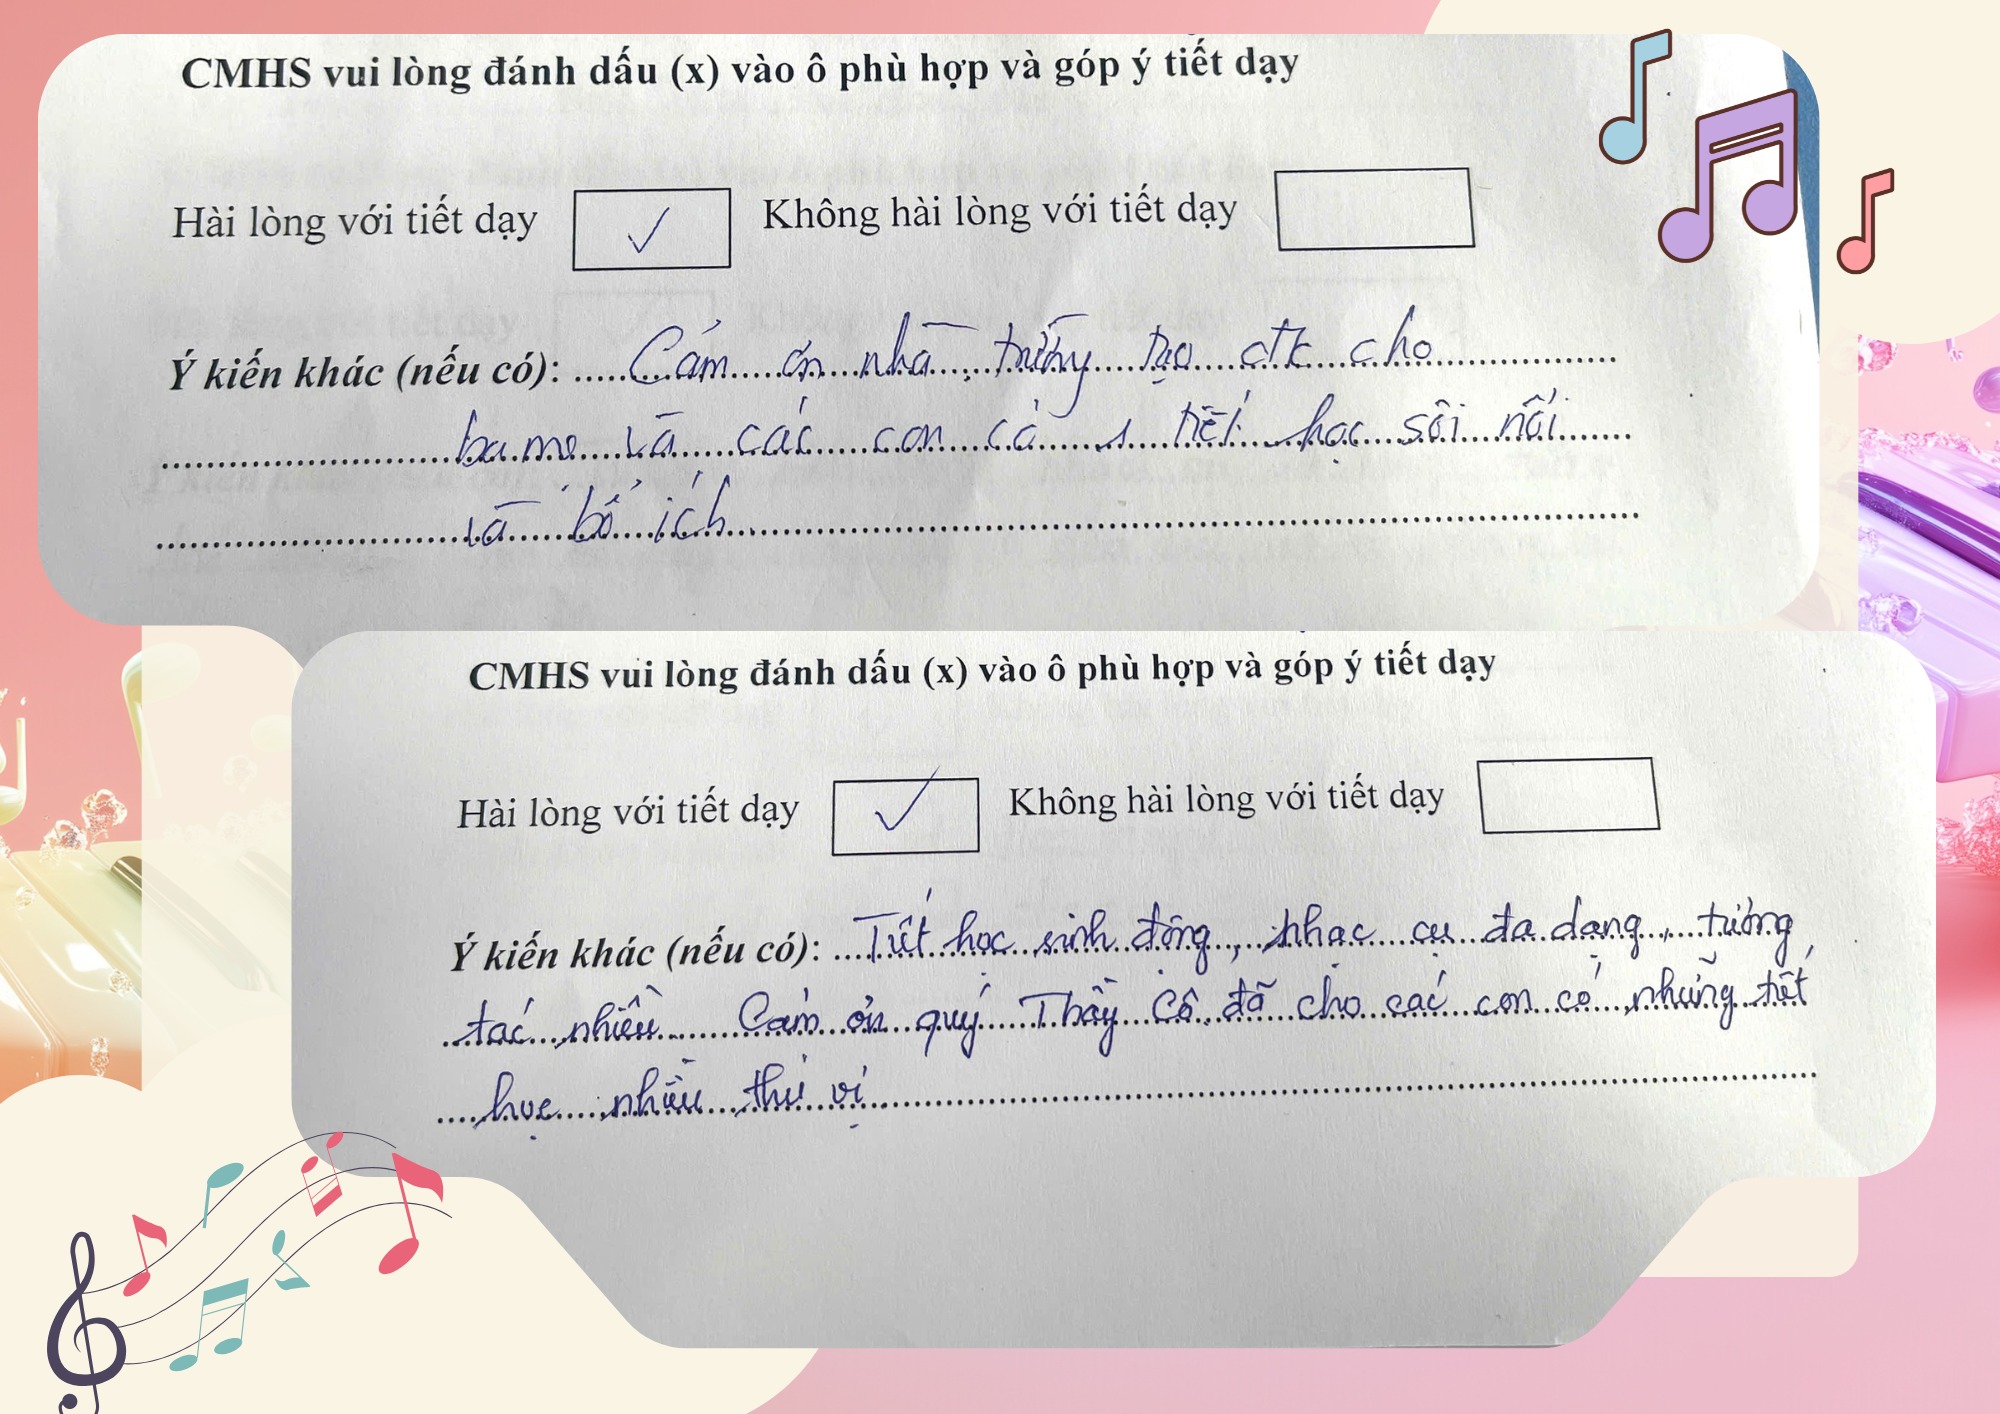 CMHS vui lòng đánh dấu (x) vào ô phù hợp và góp ý tiết dạy
Hài lòng với tiết dạy Không hài lòng với tiết dạy
Ý kiến khác (nếu có): Cảm ơn nhà trường tạo đk cho
ba mẹ và các con có 1 tiết học sôi nổi
và bổ ích
CMHS vui lòng đánh dấu (x) vào ô phù hợp và góp ý tiết dạy
Hài lòng với tiết dạy Không hài lòng với tiết dạy
Ý kiến khác (nếu có): Tiết học sinh động, nhạc cụ đa dạng, tương
tác nhiều. Cảm ơn quý Thầy Cô đã cho các con có những tiết
học nhiều thú vị